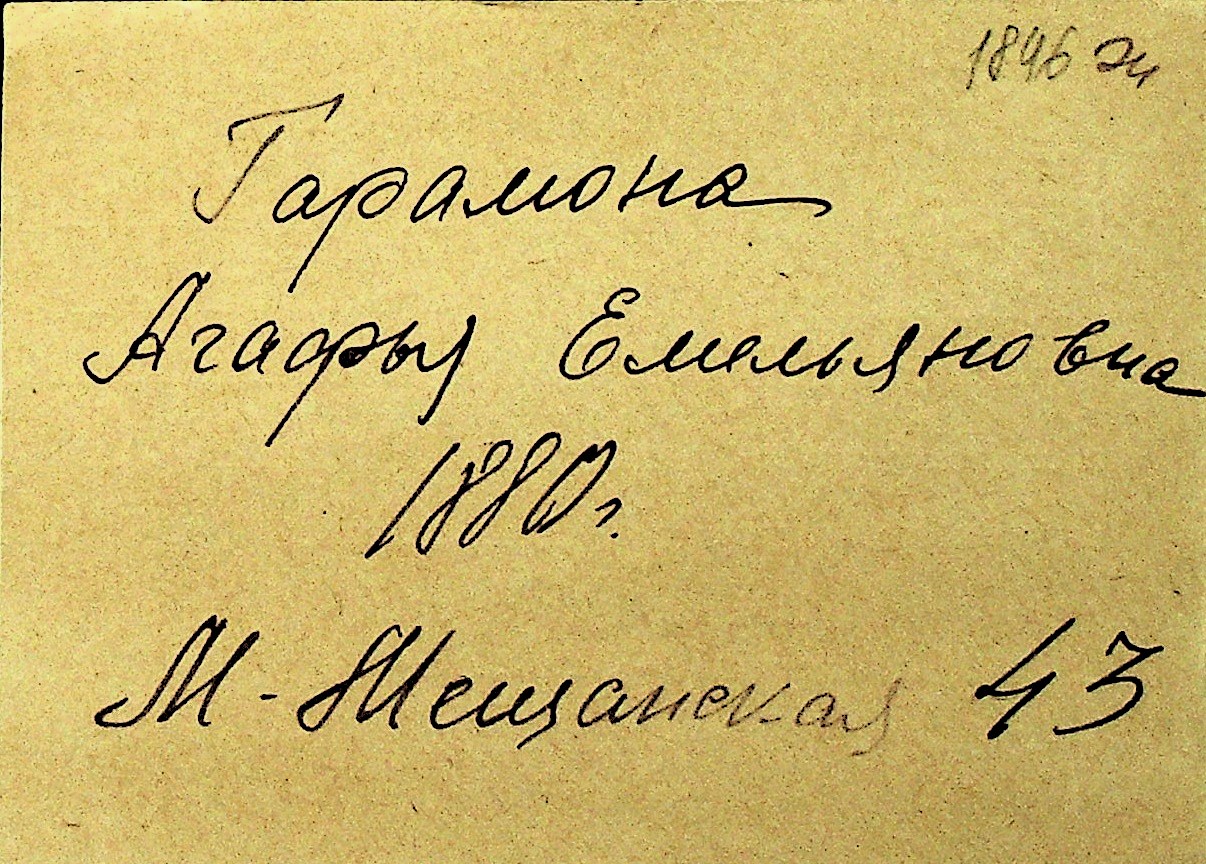 1896 эи
Гарамона
Агафья Емельяновна
1880г.
М-Мещанская 43